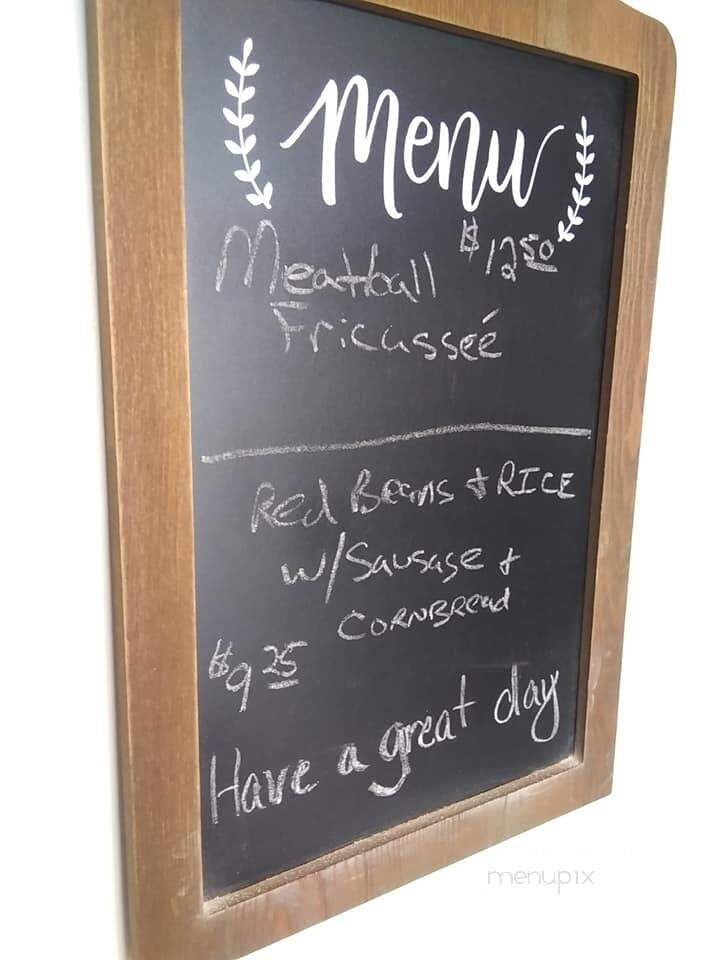 Menu
Meatball $12.50
Fricasseé
Red Beans & RICE
w/Sausage &
CORNBRead
$9.25
Have a great day
menupix